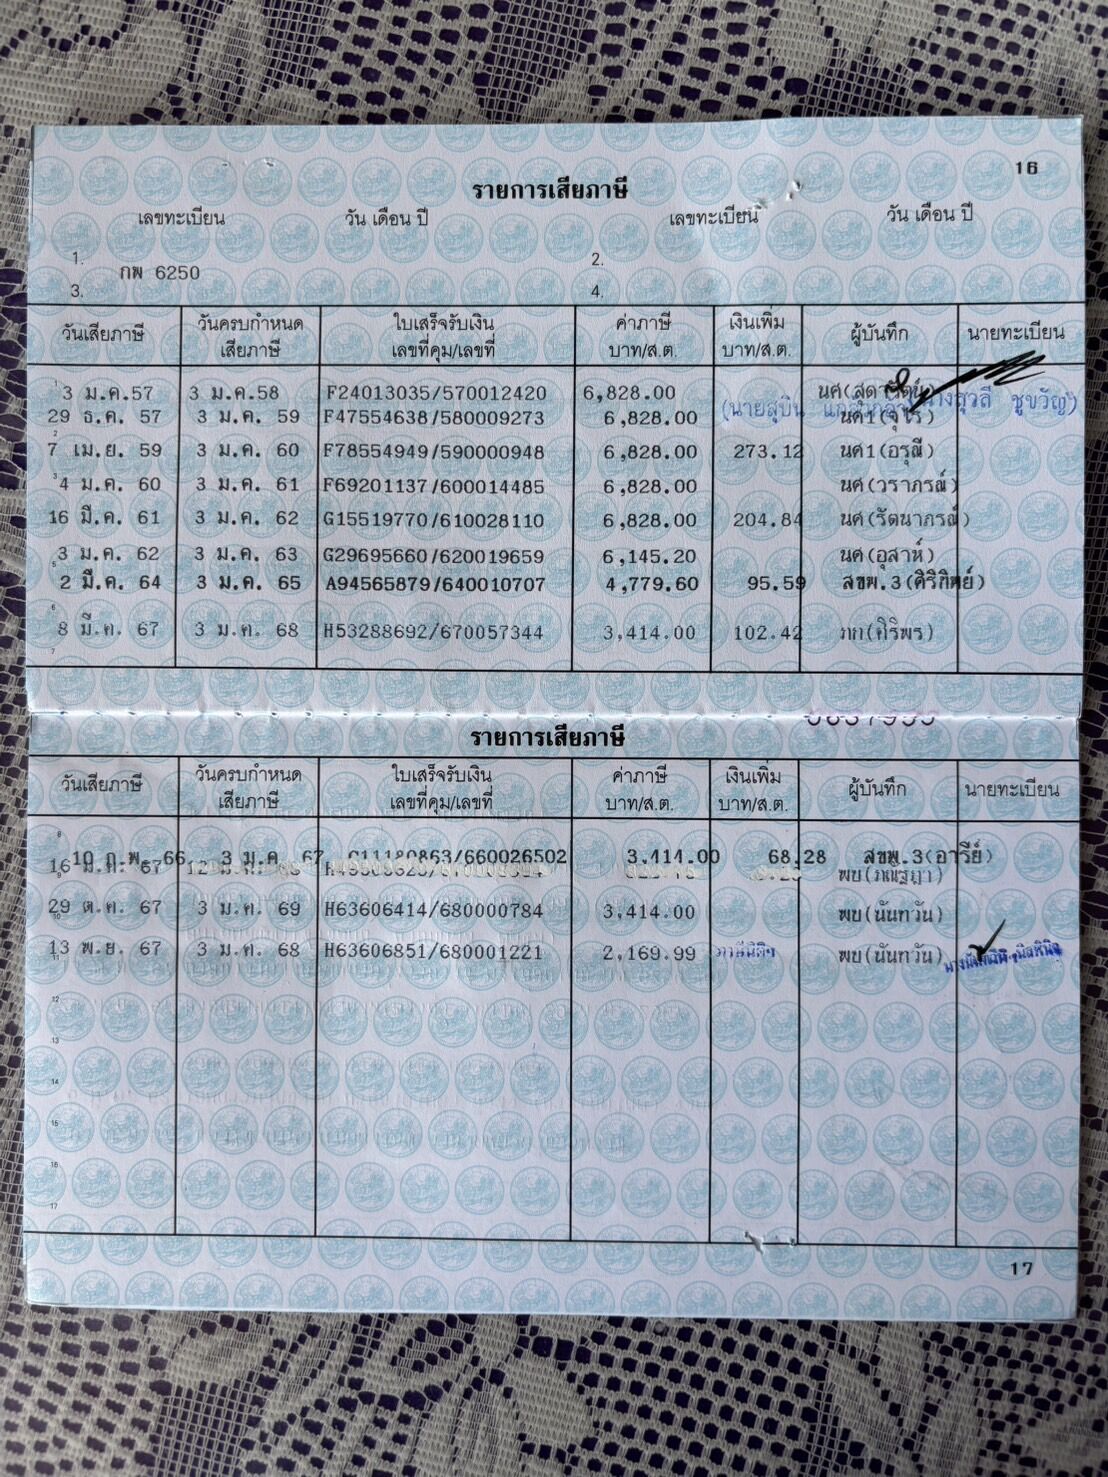 16
รายการเสียภาษี
เลขทะเบียน วัน เดือน ปี เลขทะเบียน วัน เดือน ปี
1. 2.
กพ 6250
3. 4.
วันเสียภาษี วันครบกำหนดเสียภาษี ใบเสร็จรับเงิน เลขที่คุม/เลขที่ ค่าภาษี บาท/ส.ต. เงินเพิ่ม บาท/ส.ต. ผู้บันทึก นายทะเบียน
1 3 ม.ค.57 3 ม.ค.58 F24013035/570012420 6,828.00
(นายสุบิน ชูขวัญ)
29 ธ.ค. 57 3 ม.ค. 59 F47554638/580009273 6,828.00
2 7 เม.ย. 59 3 ม.ค. 60 F78554949/590000948 6,828.00 273.12 นศ1(อรุณี)
3 4 ม.ค. 60 3 ม.ค. 61 F69201137/600014485 6,828.00 นศ(วราภรณ์)
16 มี.ค. 61 3 ม.ค. 62 G15519770/610028110 6,828.00 204.84 นศ(รัตนาภรณ์)
5 3 ม.ค. 62 3 ม.ค. 63 G29695660/620019659 6,145.20 นศ(อุสาห์)
2 มี.ค. 64 3 ม.ค. 65 A94565879/640010707 4,779.60 95.59 สขพ.3(ศิริทิพย์)
6 8 มี.ค. 67 3 ม.ค. 68 H53288692/670057344 3,414.00 102.42 ภก(ศิริพร)
7
รายการเสียภาษี
วันเสียภาษี วันครบกำหนดเสียภาษี ใบเสร็จรับเงิน เลขที่คุม/เลขที่ ค่าภาษี บาท/ส.ต. เงินเพิ่ม บาท/ส.ต. ผู้บันทึก นายทะเบียน
8
10 ก.พ. 66 3 ม.ค. 67 660026502 3,414.00 68.28 สขพ.3(อารีย์)
9 16 ม.ค. 67
29 ต.ค. 67 3 ม.ค. 69 H63606414/680000784 3,414.00 พบ(นันทวัน)
10
13 พ.ย. 67 3 ม.ค. 68 H63606851/680001221 2,169.99 พบ(นันทวัน)
11
12
13
14
15
16
17
17